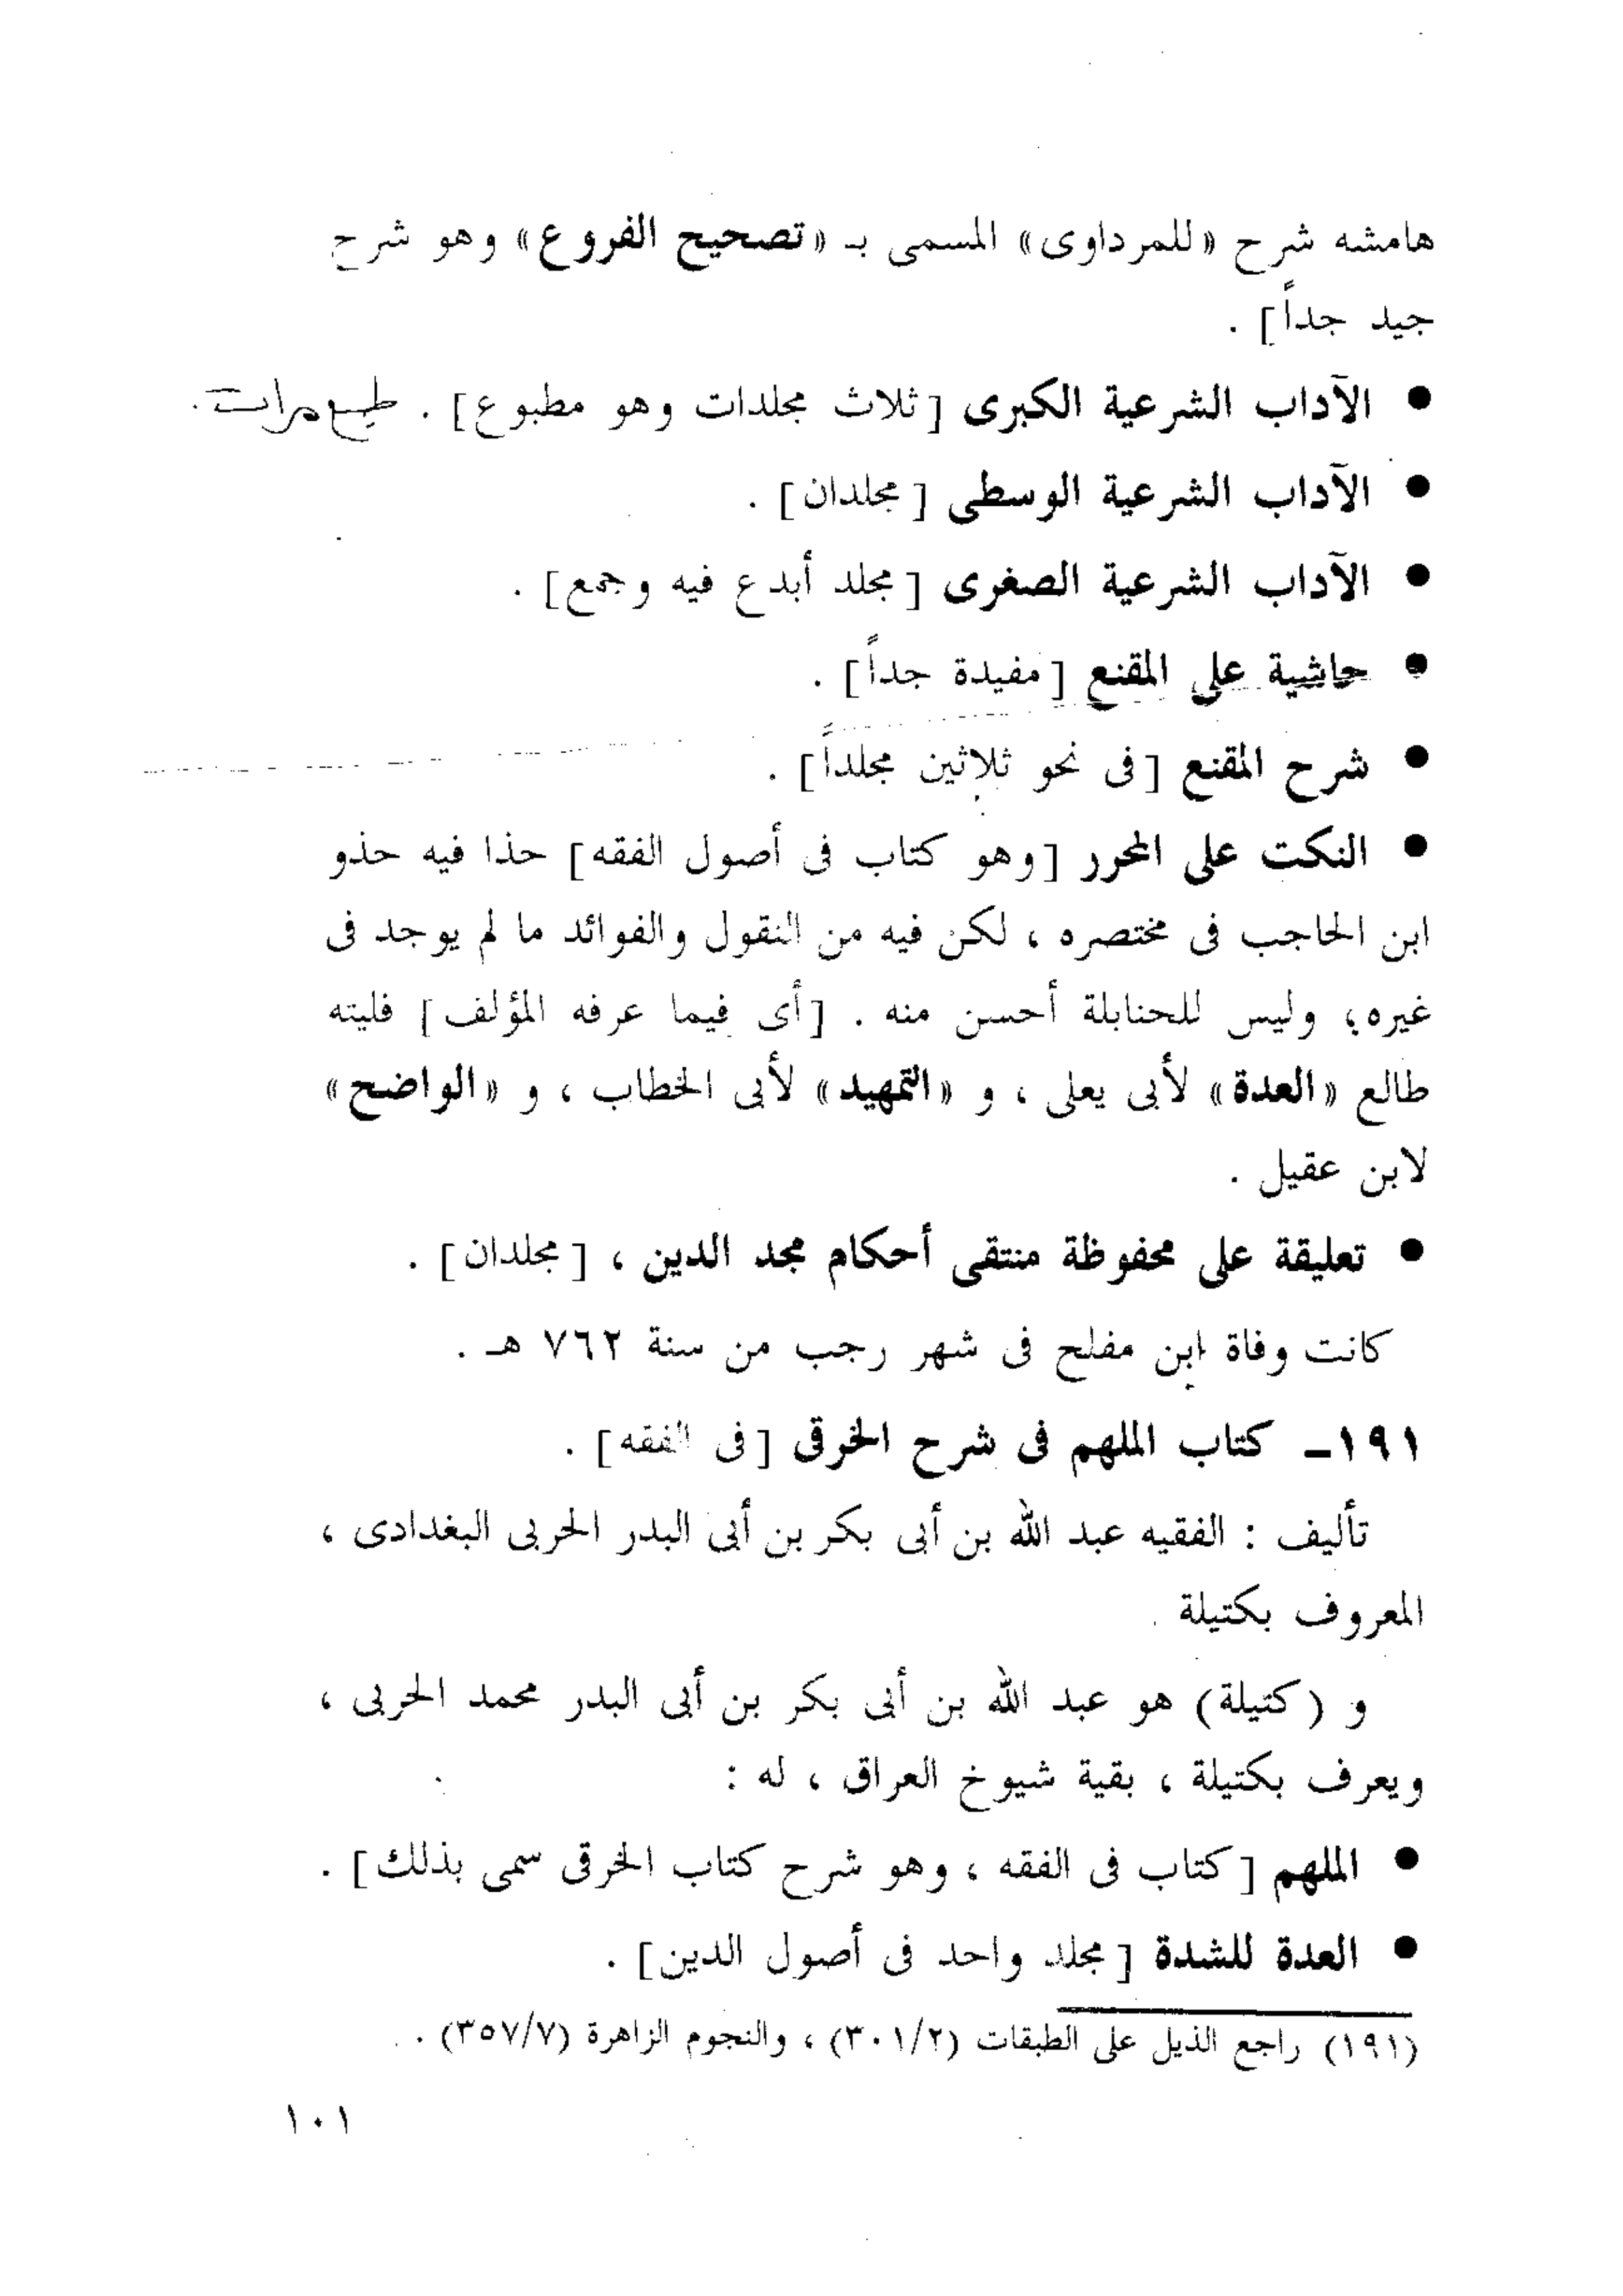 هامشه شرح «للمرداوى» المسمى بـ «تصحيح الفروع» وهو شرح
جيد جداً] .
● الآداب الشرعية الكبرى [ثلاث مجلدات وهو مطبوع] . طبع مرات
● الآداب الشرعية الوسطى [مجلدان] .
● الآداب الشرعية الصغرى [مجلد أبدع فيه وجمع] .
● حاشية على المقنع [مفيدة جداً] .
● شرح المقنع [فى نحو ثلاثين مجلداً] .
● النكت على المحرر [وهو كتاب فى أصول الفقه] حذا فيه حذو
ابن الحاجب فى مختصره ، لكن فيه من النقول والفوائد ما لم يوجد فى
غيره؛ وليس للحنابلة أحسن منه . [أى فيما عرفه المؤلف] فليته
طالع «العدة» لأبى يعلى ، و «التمهيد» لأبى الخطاب ، و «الواضح»
لابن عقيل .
● تعليقة على محفوظة منتقى أحكام مجد الدين ، [مجلدان] .
كانت وفاة ابن مفلح فى شهر رجب من سنة ٧٦٢ هـ .
١٩١ـ كتاب الملهم فى شرح الخرقى [فى الفقه] .
تأليف : الفقيه عبد الله بن أبى بكر بن أبى البدر الحربى البغدادى ،
المعروف بكتيلة .
و (كتيلة) هو عبد الله بن أبى بكر بن أبى البدر محمد الحربى ،
ويعرف بكتيلة ، بقية شيوخ العراق ، له :
● الملهم [كتاب فى الفقه ، وهو شرح كتاب الخرقى سمى بذلك] .
● العدة للشدة [مجلد واحد فى أصول الدين] .
(١٩١) راجع الذيل على الطبقات (٣٠١/٢) ، والنجوم الزاهرة (٣٥٧/٧) .
١٠١